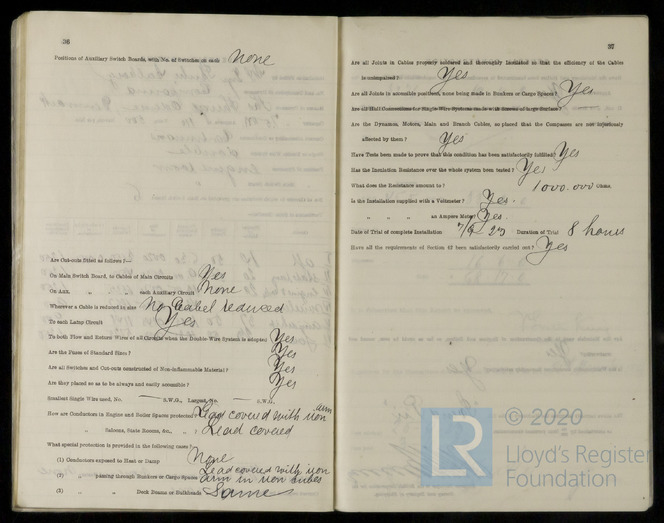 36
Positions of Auxiliary Switch Boards, with No. of Switches on each None
Are Cut-outs fitted as follows?—
On Main Switch Board, to Cables of Main Circuits Yes
On Aux. „ „ each Auxiliary Circuit None
Wherever a Cable is reduced in size No Cabel reduced
To each Lamp Circuit Yes
To both Flow and Return Wires of all Circuits when the Double-Wire System is adopted Yes
Are the Fuses of Standard Sizes? Yes
Are all Switches and Cut-outs constructed of Non-inflammable Material? Yes
Are they placed so as to be always and easily accessible? Yes
Smallest Single Wire used, No. — S.W.G., Largest, No. — S.W.G.
How are Conductors in Engine and Boiler Spaces protected? Lead covered with iron arm
„ „ Saloons, State Rooms, &c., „ ? Lead covered
What special protection is provided in the following cases?—
(1) Conductors exposed to Heat or Damp None
(2) „ passing through Bunkers or Cargo Spaces Lead covered with iron
arm in iron tubes
(3) „ „ Deck Beams or Bulkheads Same
37
Are all Joints in Cables properly soldered and thoroughly insulated so that the efficiency of the Cables
is unimpaired? Yes
Are all Joints in accessible positions, none being made in Bunkers or Cargo Spaces? Yes
Are all Hull Connections for Single-Wire Systems made with Screws of large Surface?
Are the Dynamos, Motors, Main and Branch Cables, so placed that the Compasses are not injuriously
affected by them? Yes
Have Tests been made to prove that this condition has been satisfactorily fulfilled? Yes
Has the Insulation Resistance over the whole system been tested? Yes
What does the Resistance amount to? 1000.000 Ohms.
Is the Installation supplied with a Voltmeter? Yes.
„ „ „ an Ampere Meter? Yes.
Date of Trial of complete Installation 7/6 23 Duration of Trial 8 hours
Have all the requirements of Section 42 been satisfactorily carried out? Yes
© 2020
LR
Lloyd's Register
Foundation